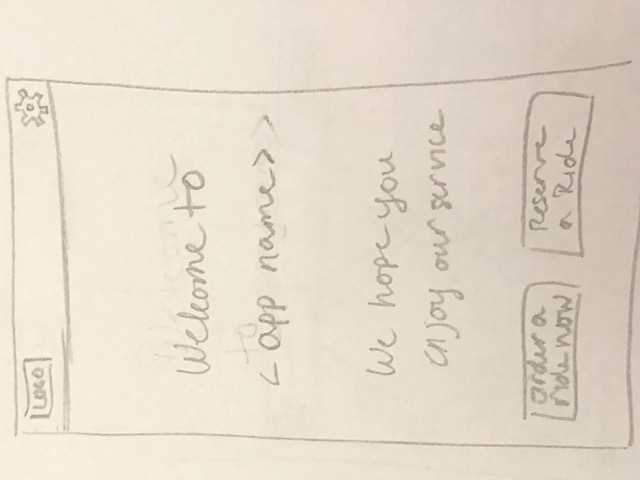 LOGO
Welcome to
< app name >
We hope you
enjoy our service
Order a
ride now
Reserve
a Ride